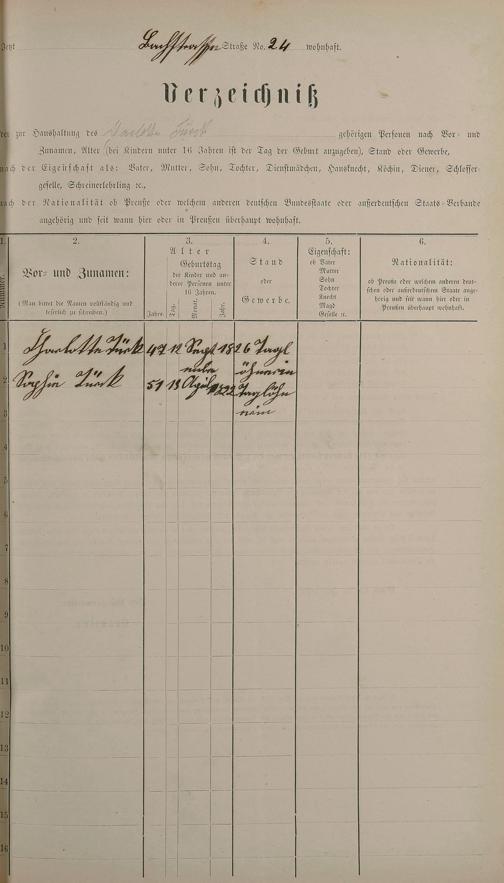 Jetzt Bachstrasse Straße No. 24 wohnhaft.
Verzeichniß
der zur Haushaltung des Charlotte Türck gehörigen Personen nach Vor- und
Zunamen, Alter (bei Kindern unter 16 Jahren ist der Tag der Geburt anzugeben), Stand oder Gewerbe,
nach der Eigenschaft als: Vater, Mutter, Sohn, Tochter, Dienstmädchen, Hausknecht, Köchin, Diener, Schlosser-
geselle, Schreinerlehling ꝛc.,
nach der Nationalität ob Preuße oder welchem anderen deutschen Bundesstaate oder außerdeutschen Staats-Verbande
angehörig und seit wann hier oder in Preußen überhaupt wohnhaft.
1. 2. 3. 4. 5. 6.
Nummer.
Vor- und Zunamen:
(Man bittet die Namen vollständig und
leserlich zu schreiben.)
Alter
Geburtstag
der Kinder und an-
derer Personen unter
16 Jahren.
Jahre. Tag. Monat. Jahr.
Stand
oder
Gewerbe.
Eigenschaft:
ob Vater
Mutter
Sohn
Tochter
Knecht
Magd
Geselle ꝛc.
Nationalität:
ob Preuße oder welchem anderen deut-
schen oder außerdeutschen Staate ange-
hörig und seit wann hier oder in
Preußen überhaupt wohnhaft.
1 Charlotte Türck 47 12 Sept 1826 Tagl
embe öhnerin
2 Sophie Türck 51 13 April 1822 Taglöhn
3 erin
4
5
6
7
8
9
10
11
12
13
14
15
16